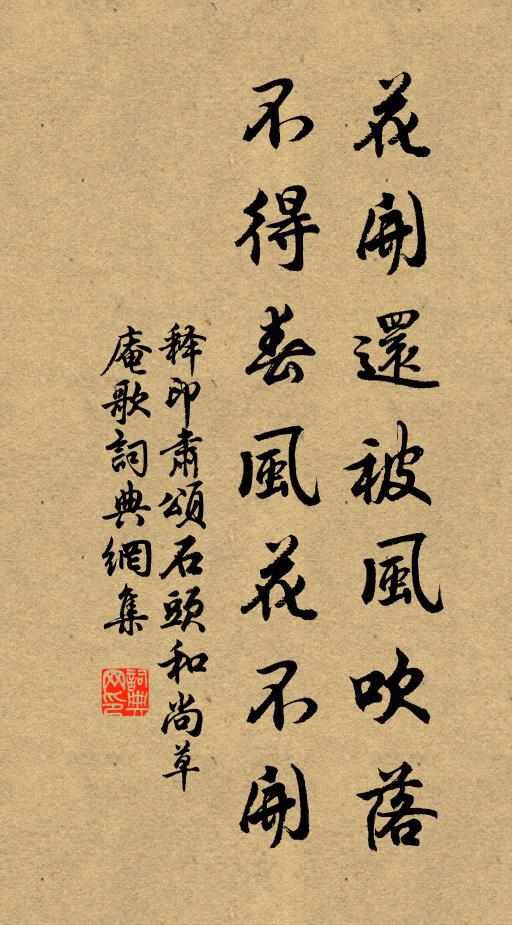 花開還被風吹落
不得春風花不開
釋印肅頌石頭和尚草
庵歌詞典網集
詞典
网印